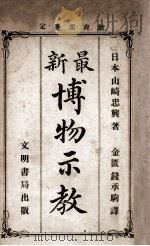 日本 山崎忠興著
金匱錢承駒譯
最新
博物示教
文明書局出版